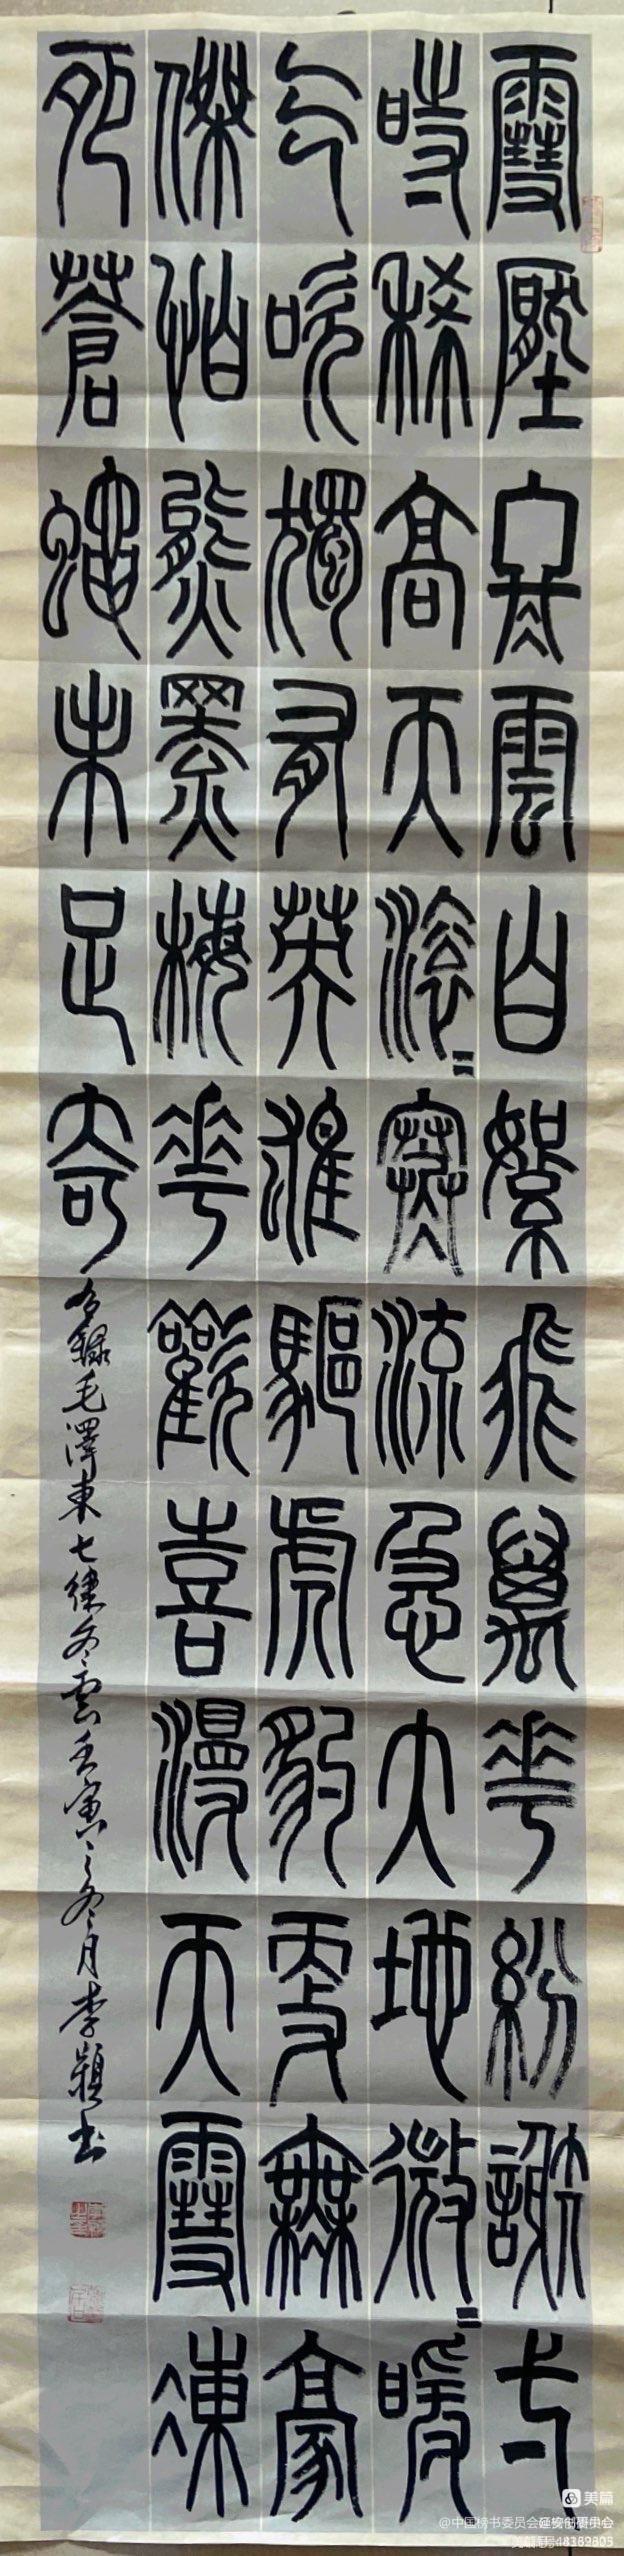 雪壓冬雲白絮飛萬花紛謝弌
時稀高天滾〻寒流急大地微〻暖
气吹獨有英雄驅虎豹更無豪
傑怕熊羆梅花歡喜漫天雪凍
死蒼蠅未足奇
右錄毛澤東七律冬雲壬寅之冬月李穎書
美篇
@中国榜书委员会
美篇号:48389805